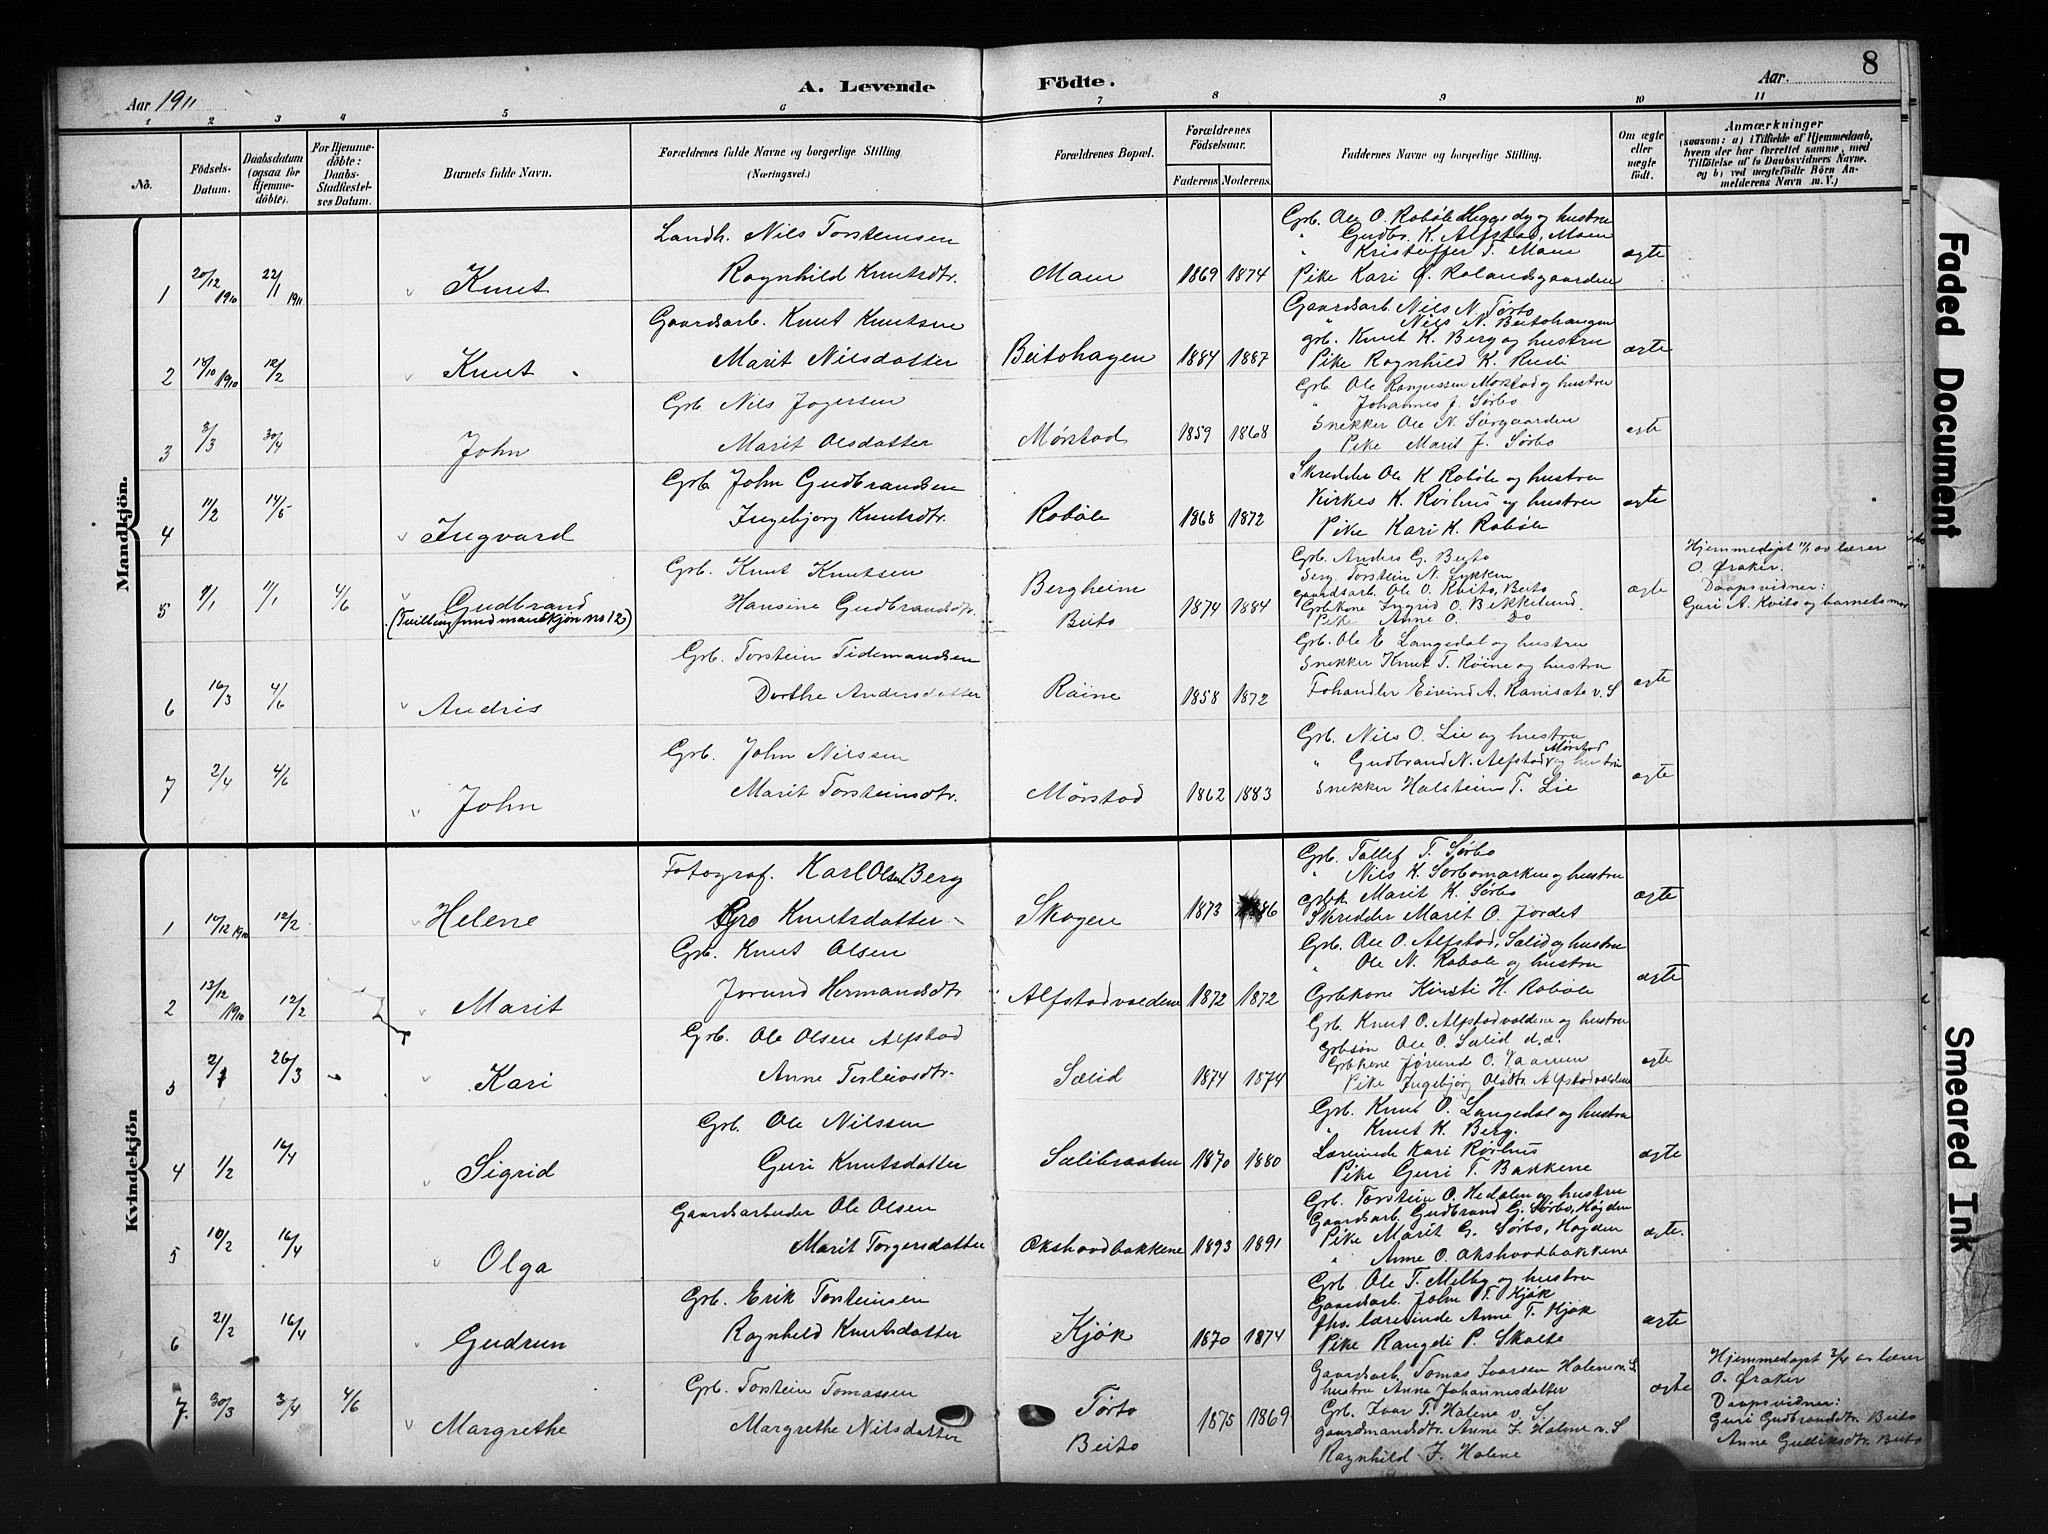 8
Aar 1911
A. Levende Födte.
Aar.
1 2 3 4 5 6 7 8 9 10 11
No.
Födsels-Datum.
Daabsdatum (ogsaa for Hjemmedöbte).
For Hjemmedöbte: Daabs-Stadfæstelses Datum.
Barnets fulde Navn.
Forældrenes fulde Navne og borgerlige Stilling. (Næringsvei.)
Forældrenes Bopæl.
Forældrenes Födselsaar.
Faderens. Moderens.
Faddernes Navne og borgerlige Stilling.
Om ægte eller uægte födt.
Anmærkninger
(saasom: a) i Tilfælde af Hjemmedaab, hvem der har forrettet samme, med Tilföielse af to Daabsvidners Navne, og b) ved uægtefödte Börn Anmelderens Navn m. V.)
Mandkjön.
1 20/12 1910 22/1 1911 Knut
Landh. Nils Torsteinsen
Ragnhild Knutsdtr.
Moen 1869 1874
Grb. Ole O. Robøle Heggedy og hustru
" Gudbr. K. Alfstad, Moen
" Kristoffer T. Moen
Pike Kari O. Rolandsgaarden
ægte
2 12/2 Knut
Gaardsarb. Knut Knutsen
Marit Nilsdatter
Beitohagen 1884 1887
Gaardsarb. Nils N. Tørto
" Nils N. Beitohaugen
grb. Knut K. Berg og hustru
Pike Ragnhild K. Rudi
ægte
3 3/3 30/4 John
Grb. Nils Jogersen
Marit Olsdatter
Mørstad 1859 1868
Grb. Ole Mørstad og hustru
" Johannes J. Sørbo.
Snekker Ole N. Sørgaarden
Pike Marit J. Sørbo
ægte
4 11/2 14/5 Ingvard
Grb. John Gudbrandsen
Ingebjorg Knutsdtr.
Robøle 1868 1872
Skredder Ole K Robøle og hustru
Kirkes K. Rørhus og hustru
Pike Kari K. Robøle
ægte
5 9/1 11/1 4/6 Gudbrand
(Tvilling med mandkjøn no 12)
Grb. Knut Knutsen
Hansine Gudbrandsdtr.
Bergheim
Beito 1874 1884
Grb. Anders G. Beito
Serg. Torstein N. Lykken
gaardsarb. Ole O. Kvito, Beito
Grbkone Ingrid O. Bekkelund.
Pike Anne O. Do
ægte
Hjemmedøpt 11/1 av lærer
O. Øraker.
Daapsvidner:
Guri A. Kvito og barnets mor
6 16/3 4/6 Andris
Grb. Torstein Tidemandsen
Dorthe Andersdatter
Røine 1858 1872
Grb. Ole E Langedal og hustru
Snekker Knut T. Røine og hustru
Fohandler Eivind A. Ranisate v. S
ægte
7 2/4 4/6 John
Grb. John Nilssen
Marit Torsteinsdtr.
Mørstad 1862 1883
Grb. Nils O. Lie og hustru
" Gudbrand N. Alfstad Mørstad og hustru
Snekker Halstein T. Lie
ægte
Kvindekjön
1 12/2 Helene
Fotograf. Karl Olsen Berg
Gro Knutsdatter
Skogen 1873 1886
Grb. Tollef T. Sørbo
" Nils K. Sørbomarken og hustru
grbk. Marit K. Sørbo
Skredder Marit O. Jordet
ægte
2 13/12 1910 12/2 Marit
Grb. Knut Olsen
Jorund Hermandsdtr.
Alfstadvoldene 1872 1872
Grb. Ole O. Alfstad, Sælid og hustru
" Ole N. Robøle og hustru
Grbkone Kirsti H. Robøle
ægte
3 26/3 Kari
Grb. Ole Olsen Alfstad
Anne Torleivsdtr.
Sælid 1874 1874
Grb. Knut O. Alfstadvoldene og hustru
Grbsøn Ole O. Sælid d.æ.
Grbkone Jørund O.
Pike Ingebjorg Olsdtr. Alfstadvoldene
ægte
4 1/2 16/4 Sigrid
Grb. Ole Nilssen
Guri Knutsdatter
Sælibraaten 1870 1880
Grb. Knut O. Langedal og hustru
" Knut K. Berg.
Lærerinde Kari Rørhus
Pike Guri T. Bakkene
ægte
5 10/2 16/4 Olga
Gaardsarbeider Ole Olsen
Marit Torgersdatter
Okshovdbakkene 1893 1891
Grb. Torstein O. Hedalen og hustru
Gaardsarb. Gudbrand G. Sørbo, Høgden
Pike Marit G. Sørbo, Høgden
" Anne O. Okshovdbakkene
ægte.
6 21/2 16/4 Gudrun
Grb. Erik Torsteinsen
Ragnhild Knutsdatter
Kjøk 1870 1874
Grb. Ole T. Melby og hustru
Gaardsarb. John T. Kjøk
fhv. lærerinde Anne T. Kjøk
Pike Rangdi P. Skolte
ægte
7. 30/3 3/4 4/6 Margrethe
Grb. Torstein Tomassen
Margrethe Nilsdatter
Tørto
Beito 1875 1869
Gaardsarb. Tomas Ivarsen Halene v. S.
hustru Anna Johannesdatter
Grb. Ivar T. Halene v. S.
gaardmandsdtr. Anne I. Halene v. S
Ragnhild I. Halene
ægte
Hjemmedøpt 3/4 av lærer
O. Øraker
Daapsvidner:
Guri Gudbrandsdtr. Beito
Anne Gudiksdtr. Beito
Faded Document
Smeared Ink